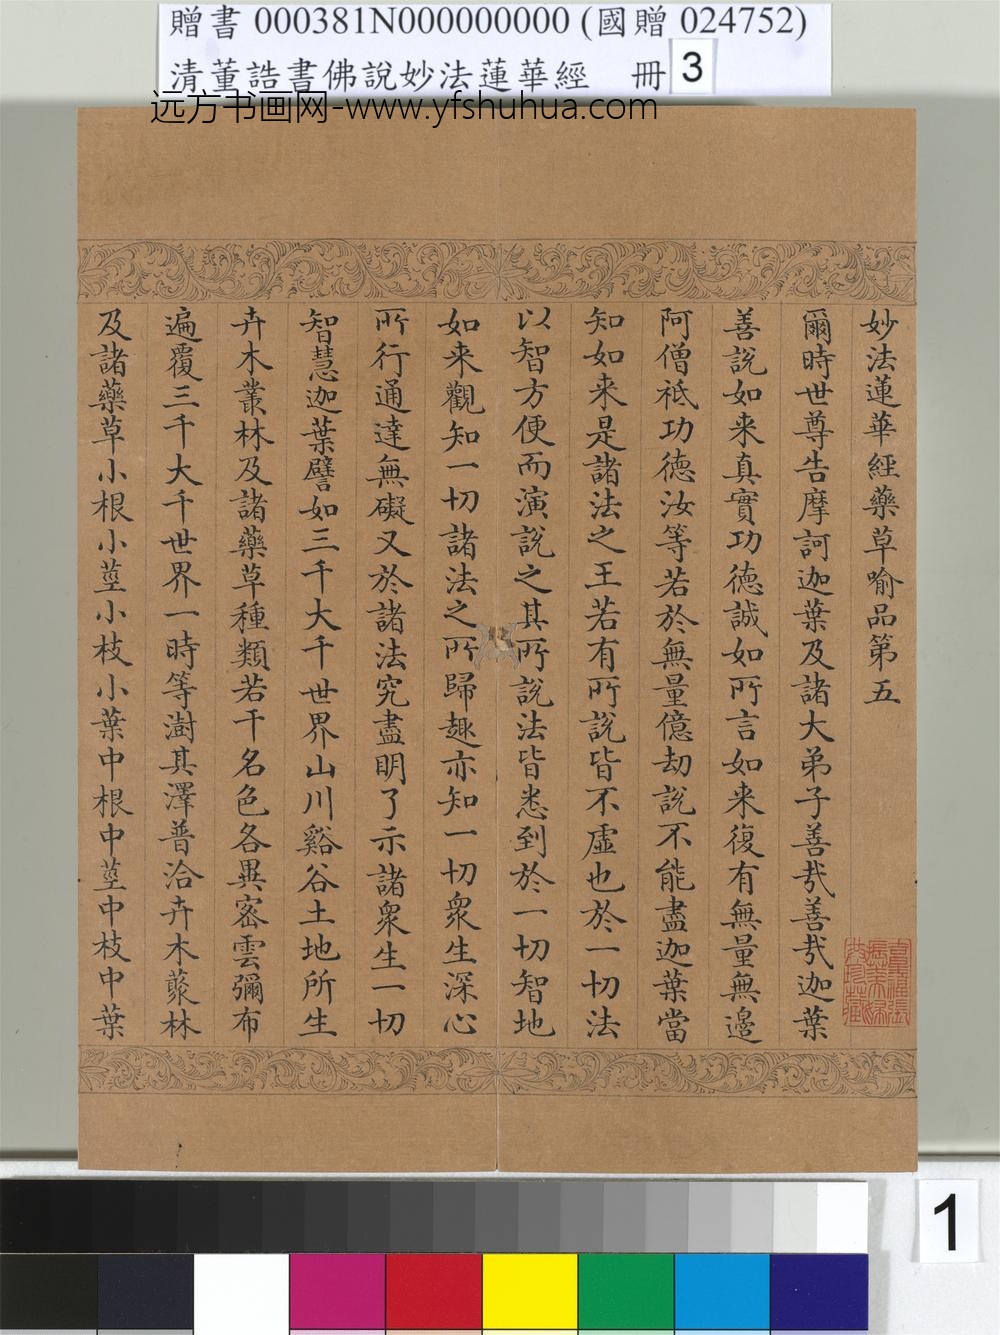 贈書 000381N000000000 (國贈 024752)
清董誥書佛說妙法蓮華經 冊 3
远方书画网-www.yfshuhua.com
妙法蓮華經藥草喻品第五
爾時世尊告摩訶迦葉及諸大弟子善哉善哉迦葉
善說如来真實功德誠如所言如来復有無量無邊
阿僧祇功德汝等若於無量億劫說不能盡迦葉當
知如来是諸法之王若有所說皆不虛也於一切法
以智方便而演說之其所說法皆悉到於一切智地
如来觀知一切諸法之所歸趣亦知一切眾生深心
所行通達無礙又於諸法究盡明了示諸眾生一切
智慧迦葉譬如三千大千世界山川谿谷土地所生
卉木叢林及諸藥草種類若干名色各異密雲彌布
遍覆三千大千世界一時等澍其澤普洽卉木藂林
及諸藥草小根小莖小枝小葉中根中莖中枝中葉
1